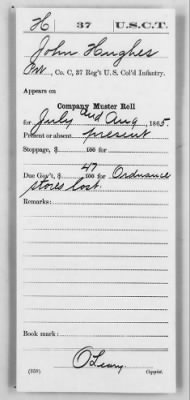 H | 37 | U.S.C.T.
John Hughes
Pvt, Co. C, 37 Reg't U. S. Col'd Infantry.
Appears on
Company Muster Roll
for July and Aug, 1865.
Present or absent present
Stoppage, $ 100 for
Due Gov't, $ 47/100 for Ordnance
stores lost.
Remarks:
Book mark:
O'Leary
(358) Copyist.